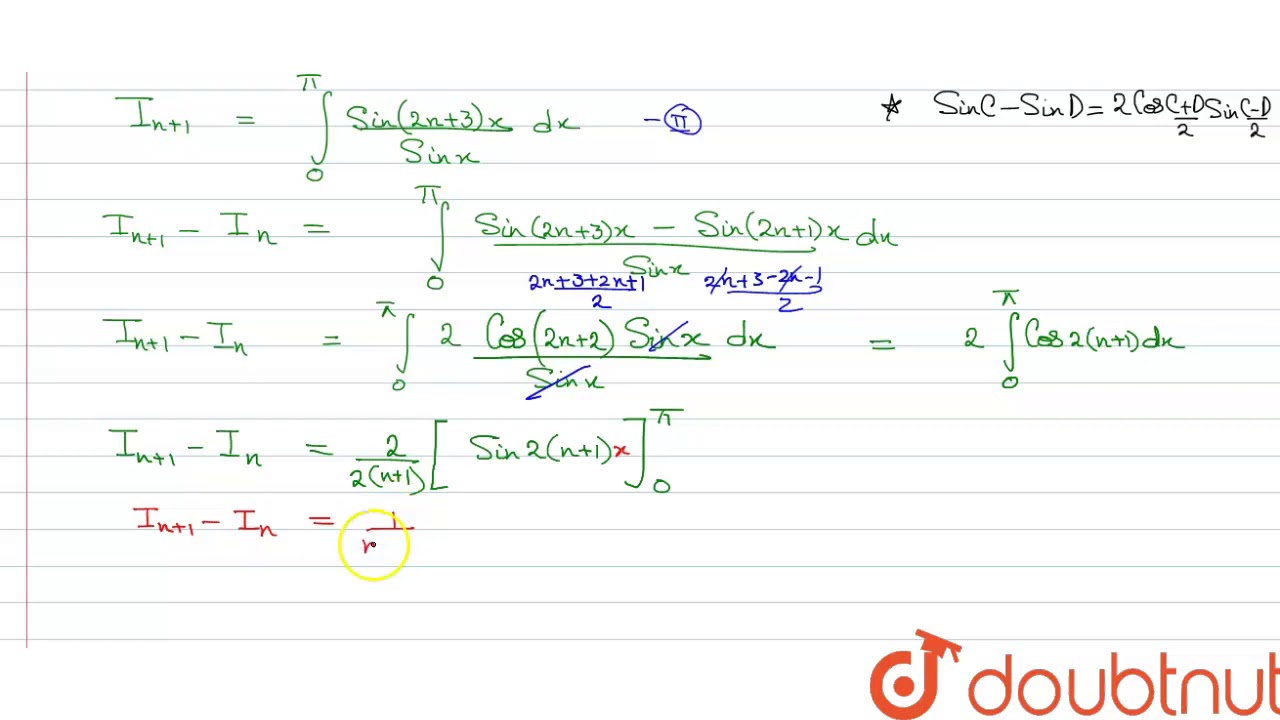 I_{n+1} = ∫_0^π Sin(2n+3)x / Sinx dx - π
☆ SinC - SinD = 2 Cos C+D/2 Sin C-D/2
I_{n+1} - I_n = ∫_0^π Sin(2n+3)x - Sin(2n+1)x / Sinx dx
2n+3+2n+1 / 2 2n+3-2n-1 / 2
I_{n+1} - I_n = ∫_0^π 2 Cos(2n+2) Sinx / Sinx dx = 2 ∫_0^π Cos2(n+1)dx
I_{n+1} - I_n = 2 / 2(n+1) [ Sin2(n+1)x ]_0^π
I_{n+1} - I_n = 1
doubtnut